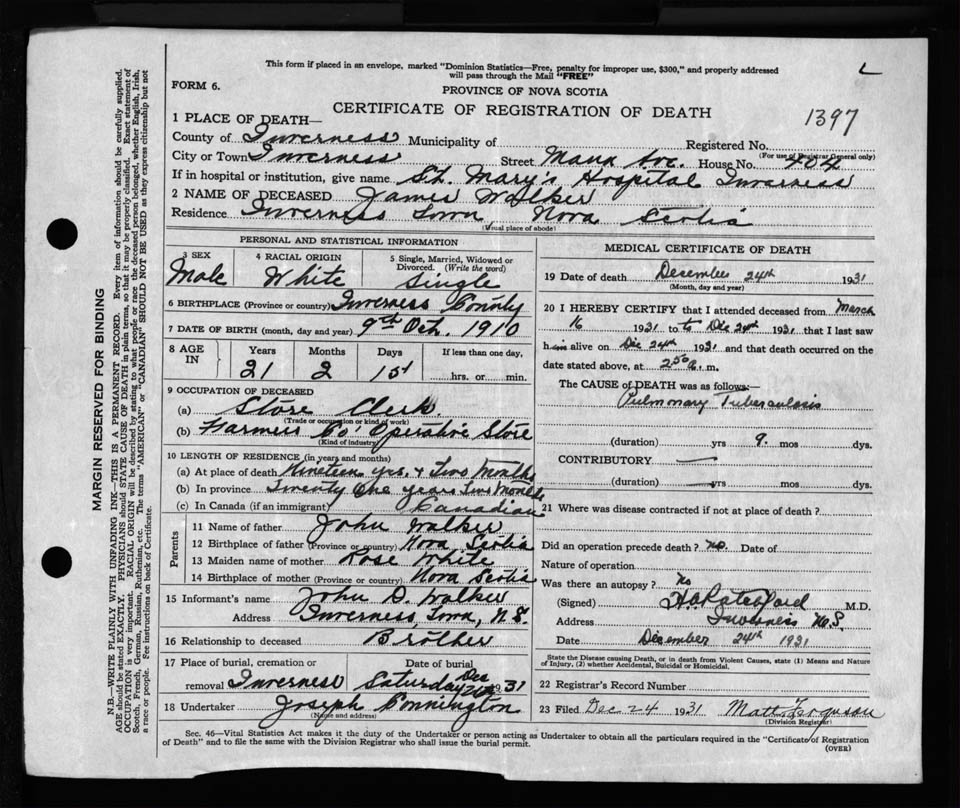 This form if placed in an envelope, marked "Dominion Statistics—Free, penalty for improper use, $300," and properly addressed
will pass through the Mail "FREE"
FORM 6.
PROVINCE OF NOVA SCOTIA
CERTIFICATE OF REGISTRATION OF DEATH
1397
1 PLACE OF DEATH—
County of Inverness Municipality of Registered No.
(For use of Registrar General only)
City or Town Inverness Street Ave. House No. 402
If in hospital or institution, give name St. Mary's Hospital Inverness
2 NAME OF DECEASED James Walker
Residence Inverness Town Nova Scotia
(Usual place of abode)
PERSONAL AND STATISTICAL INFORMATION
3 SEX 4 RACIAL ORIGIN 5 Single, Married, Widowed or
Divorced. (Write the word)
Male White Single
6 BIRTHPLACE (Province or country) Inverness County
7 DATE OF BIRTH (month, day and year) 9th Oct. 1910
8 AGE IN Years Months Days If less than one day,
21 2 15 hrs. or min.
9 OCCUPATION OF DECEASED
(a) Store Clerk
(Trade or occupation or kind of work)
(b) Farmers Co' Operative Store
(Kind of industry)
10 LENGTH OF RESIDENCE (in years and months)
(a) At place of death Nineteen yrs. + Two Months
(b) In province Twenty One years Two Months
(c) In Canada (if an immigrant) Canadian
Parents
11 Name of father John Walker
12 Birthplace of father (Province or country) Nova Scotia
13 Maiden name of mother Rose White
14 Birthplace of mother (Province or country) Nova Scotia
15 Informant's name John D. Walker
Address Inverness, Town, N.S.
16 Relationship to deceased Brother
17 Place of burial, cremation or Date of burial
removal Inverness Saturday Dec 26th 1931
18 Undertaker Joseph Ponnington
(Name and address)
MEDICAL CERTIFICATE OF DEATH
19 Date of death December 24th 1931
(Month, day and year)
20 I HEREBY CERTIFY that I attended deceased from March
16 1931 to to Dec 24th 1931, that I last saw
him alive on Dec 24th 1931 and that death occurred on the
date stated above, at 2 50 a. m.
The CAUSE of DEATH was as follows:—
Pulmonary Tuberculosis
(duration) yrs 9. mos dys.
CONTRIBUTORY
(duration) yrs mos dys.
21 Where was disease contracted if not at place of death?
Did an operation precede death? no. Date of
Nature of operation
Was there an autopsy? no
(Signed) M.D.
Address Inverness N.S.
Date December 24th 1931
State the Disease causing Death, or in death from Violent Causes, state (1) Means and Nature
of Injury, (2) whether Accidental, Suicidal or Homicidal.
22 Registrar's Record Number
23 Filed Dec 24 1931 Matt Ferguson
(Division Registrar)
Sec. 46—Vital Statistics Act makes it the duty of the Undertaker or person acting as Undertaker to obtain all the particulars required in the "Certificate of Registration
of Death" and to file the same with the Division Registrar who shall issue the burial permit.
(OVER)
MARGIN RESERVED FOR BINDING
N.B.—WRITE PLAINLY WITH UNFADING INK—THIS IS A PERMANENT RECORD. Every item of information should be carefully supplied.
AGE should be stated EXACTLY. PHYSICIANS should STATE CAUSE OF DEATH in plain terms, so that it may be properly classified. Exact statement of
OCCUPATION is very important. RACIAL ORIGIN will be described by stating to what people or race the deceased person belonged, whether English, Irish,
Scotch, French, German, Russian, Ruthenian, etc. The terms "AMERICAN" or "CANADIAN" SHOULD NOT BE USED as they express citizenship but not
a race or people. See instructions on back of Certificate.